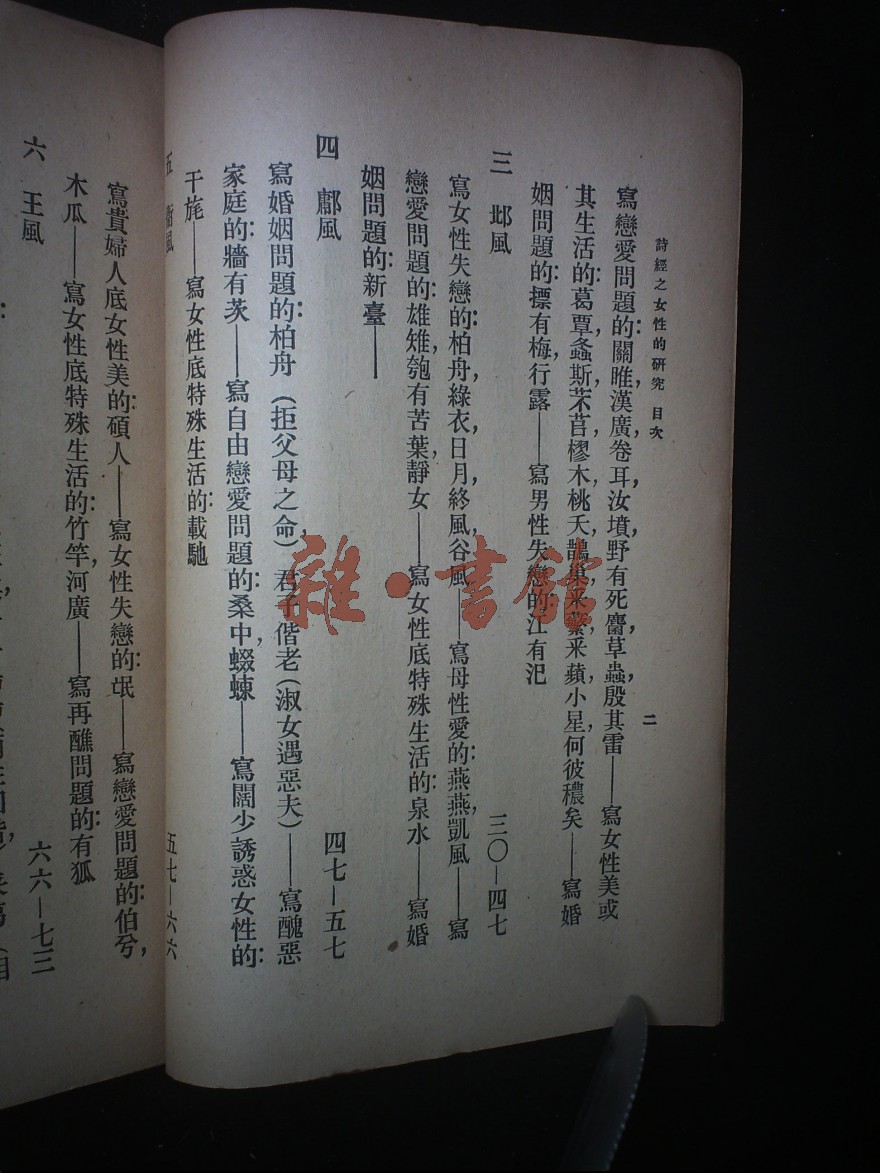 詩經之女性的研究 目次
二
寫戀愛問題的:關睢,漢廣,卷耳,汝墳,野有死麕,草蟲,殷其雷——寫女性美或
其生活的:葛覃,螽斯,芣苢,樛木,桃夭,鵲巢,采蘩,采蘋,小星,何彼穠矣——寫婚
姻問題的:摽有梅,行露——寫男性失戀的江有汜
三 邶風 三〇—四七
寫女性失戀的:柏舟,綠衣,日月,終風,谷風——寫母性愛的:燕燕,凱風——寫
戀愛問題的:雄雉,匏有苦葉,靜女——寫女性底特殊生活的:泉水——寫婚
姻問題的:新臺——
四 鄘風 四七—五七
寫婚姻問題的:柏舟(拒父母之命),君子偕老(淑女遇惡夫)——寫醜惡
家庭的:牆有茨——寫自由戀愛問題的:桑中,蝃蝀——寫闊少誘惑女性的:
干旄——寫女性底特殊生活的:載馳
五 衛風 五七—六六
寫貴婦人底女性美的:碩人——寫女性失戀的:氓——寫戀愛問題的:伯兮,
木瓜——寫女性底特殊生活的:竹竿,河廣——寫再醮問題的:有狐
六 王風 六六—七三
雜·書館